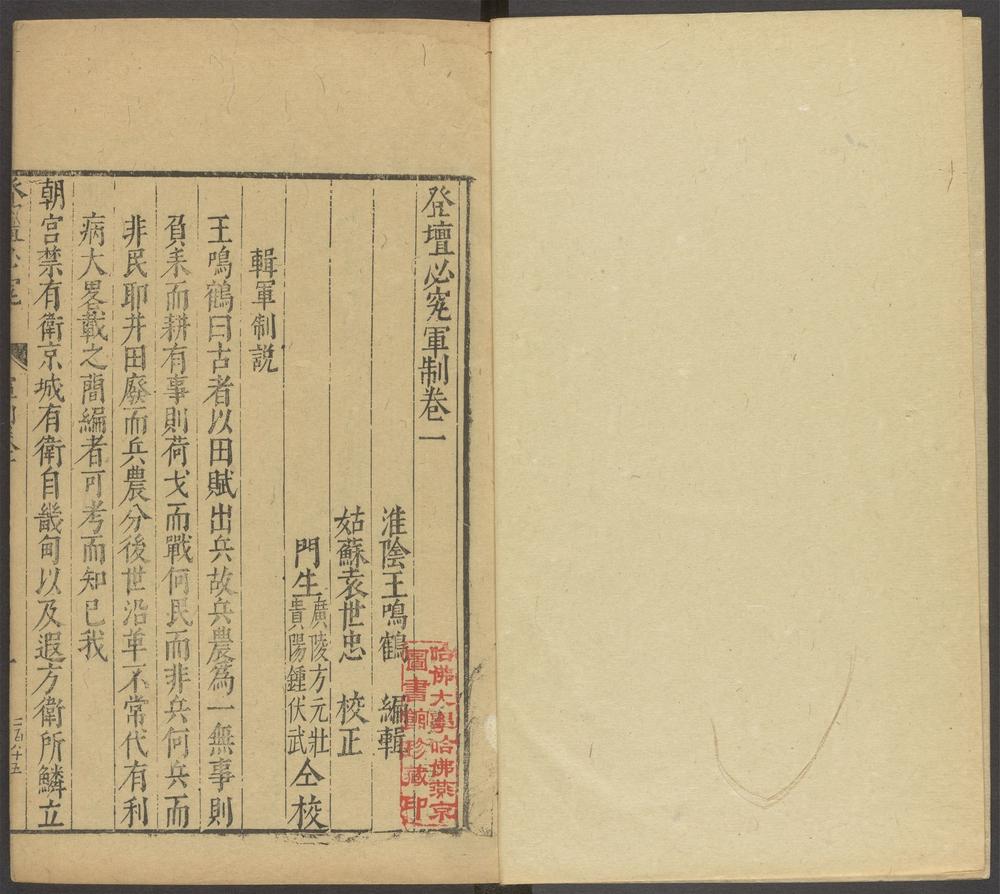 登壇必究軍制卷一
淮陰王鳴鶴 編輯
姑蘇袁世忠 校正
門生廣陵方元壯貴陽鍾伏武仝校
輯軍制説
王鳴鶴曰古者以田賦出兵故兵農爲一無事則
負耒而耕有事則荷戈而戰何民而非兵何兵而
非民耶井田廢而兵農分後世沿革不常代有利
病大畧載之簡編者可考而知已我
朝宮禁有衛京城有衛自畿甸以及遐方衛所鱗立
哈佛大學哈佛燕京
圖書館珍藏印